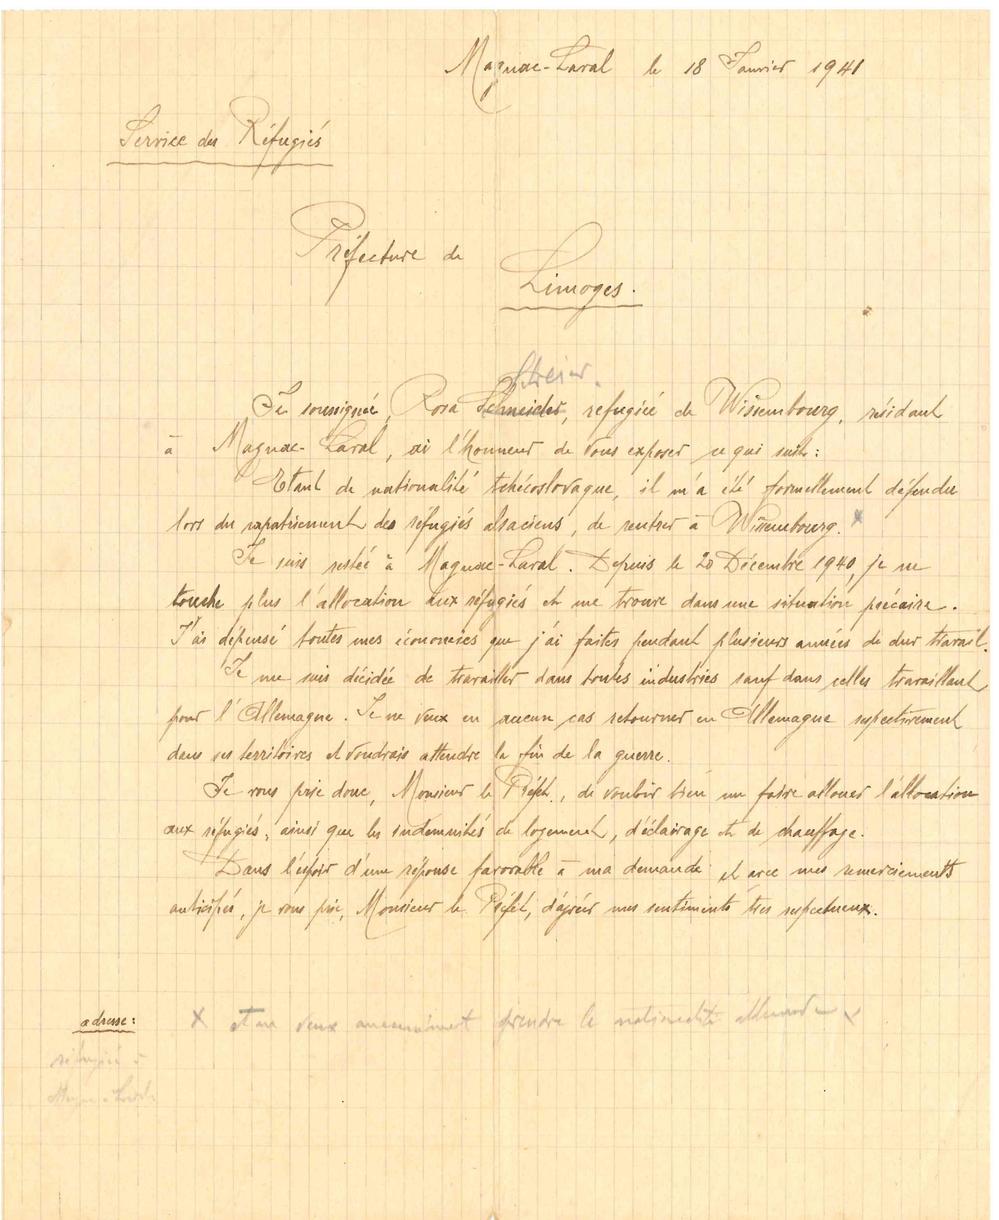 Magnac-Laval le 18 Janvier 1941
Service des Réfugiés
Préfecture de
Limoges.
Je soussignée, Rosa Schneider, refugiée de Wissembourg, résidant
à Magnac-Laval, ai l'honneur de vous exposer ce qui suit:
Etant de nationalité tchécoslovaque, il m'a été formellement défendu
lors du rapatriement des réfugiés alsaciens, de rentrer à Wissembourg. x
Je suis restée à Magnac-Laval. Depuis le 20 Décembre 1940, je ne
touche plus l'allocation aux réfugiés et me trouve dans une situation précaire.
J'ai dépensé toutes mes économies que j'ai faites pendant plusieurs années de dur travail.
Je me suis décidée de travailler dans toutes industries sauf dans celles travaillant
pour l'Allemagne. Je ne veux en aucun cas retourner en Allemagne respectivement
dans ses territoires et voudrais attendre la fin de la guerre.
Je vous prie donc, Monsieur le Préfet, de vouloir bien me faire allouer l'allocation
aux réfugiés, ainsi que les indemnités de logement, d'éclairage et de chauffage.
Dans l'espoir d'une réponse favorable à ma demande et avec mes remerciements
anticipés, je vous prie, Monsieur le Préfet, d'agréer mes sentiments très respectueux.
adresse:
x et ne veux aucunément prendre la nationalité allemande x
réfugiée à
Magnac-Laval